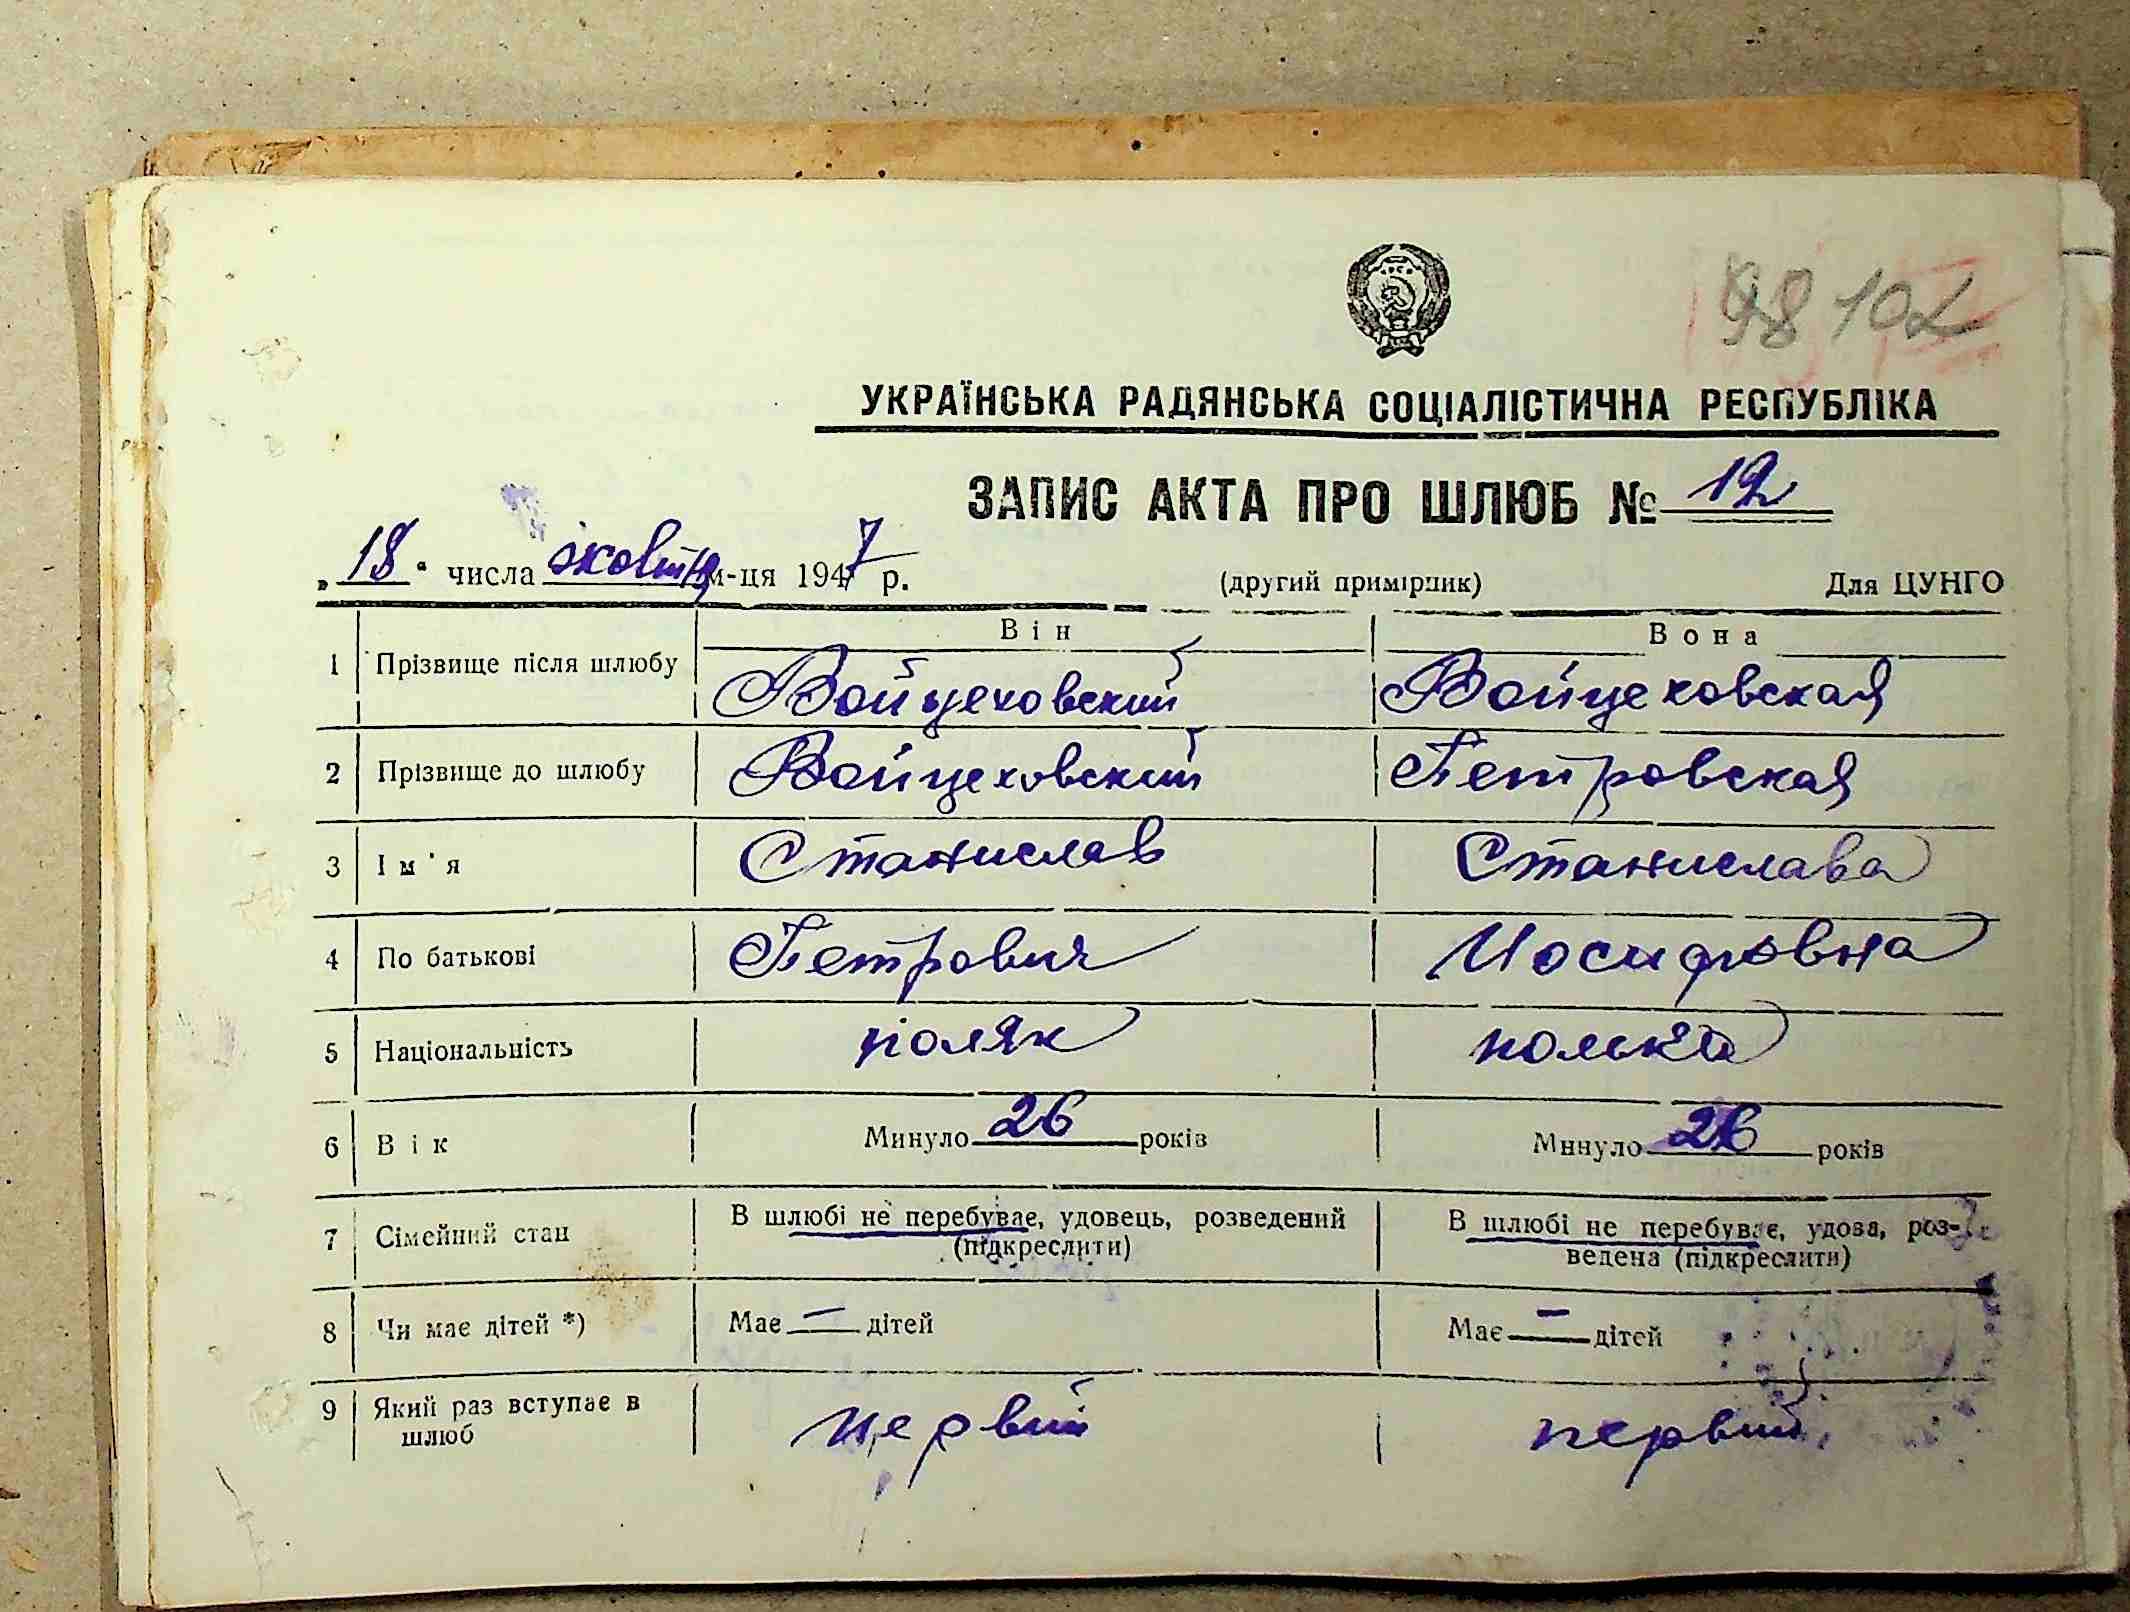 98 102
УКРАЇНСЬКА РАДЯНСЬКА СОЦІАЛІСТИЧНА РЕСПУБЛІКА
ЗАПИС АКТА ПРО ШЛЮБ № 12
„18“ числа жовтня м-ця 1947 р. (другий примірник) Для ЦУНГО
Він Вона
1 Прізвище після шлюбу Войцеховский Войцеховская
2 Прізвище до шлюбу Войцеховский Петровская
3 Ім'я Станислав Станислава
4 По батькові Петрович Иосифовна
5 Національність поляк полька
6 Вік Минуло 26 років Минуло 26 років
7 Сімейний стан В шлюбі не перебуває, удовець, розведений В шлюбі не перебуває, удова, роз-
(підкреслити) ведена (підкреслити)
8 Чи має дітей *) Має — дітей Має — дітей
9 Який раз вступає в первий первий
шлюб